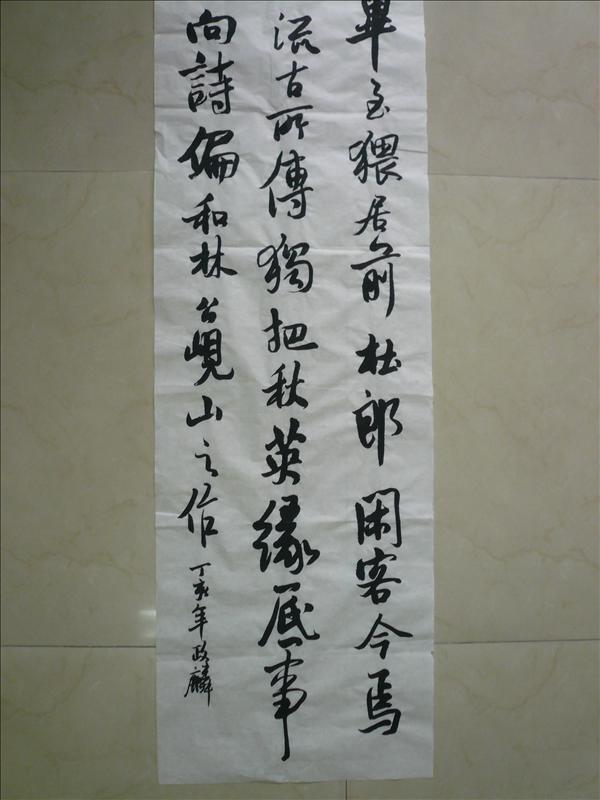 畢至猥居前杜郎閑客今焉
流古所傳獨把秋英緣底事
向詩偏和林公峴山之作
丁亥年政麟